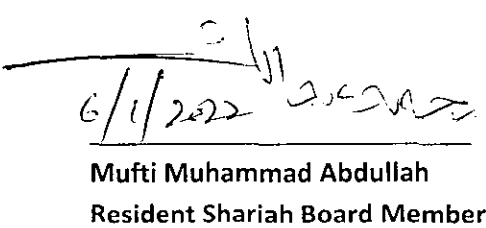 محمد عبد الله
6/1/2022
Mufti Muhammad Abdullah
Resident Shariah Board Member